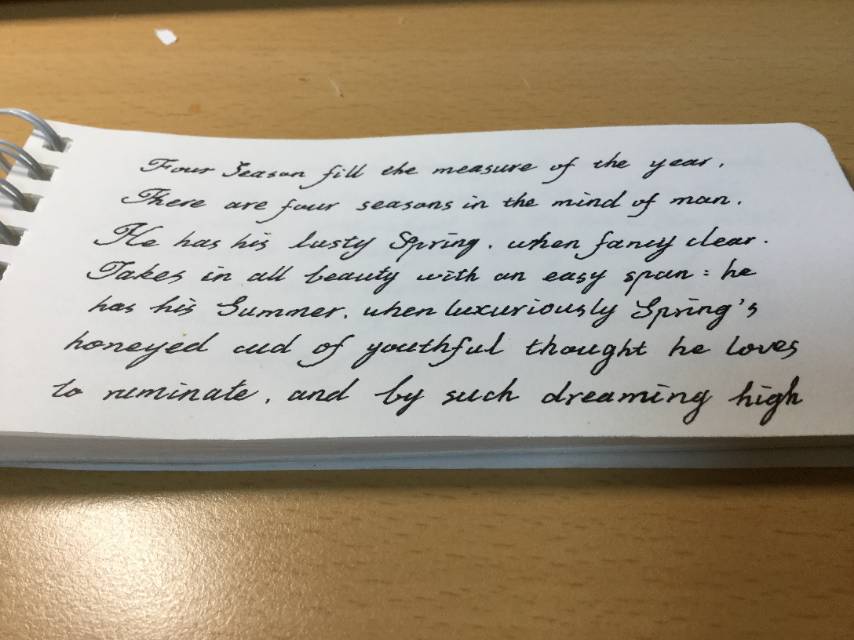 Four Season fill the measure of the year,
There are four seasons in the mind of man.
He has his lusty Spring, when fancy clear.
Takes in all beauty with an easy span: he
has his Summer, when luxuriously Spring's
honeyed cud of youthful thought he loves
to ruminate, and by such dreaming high